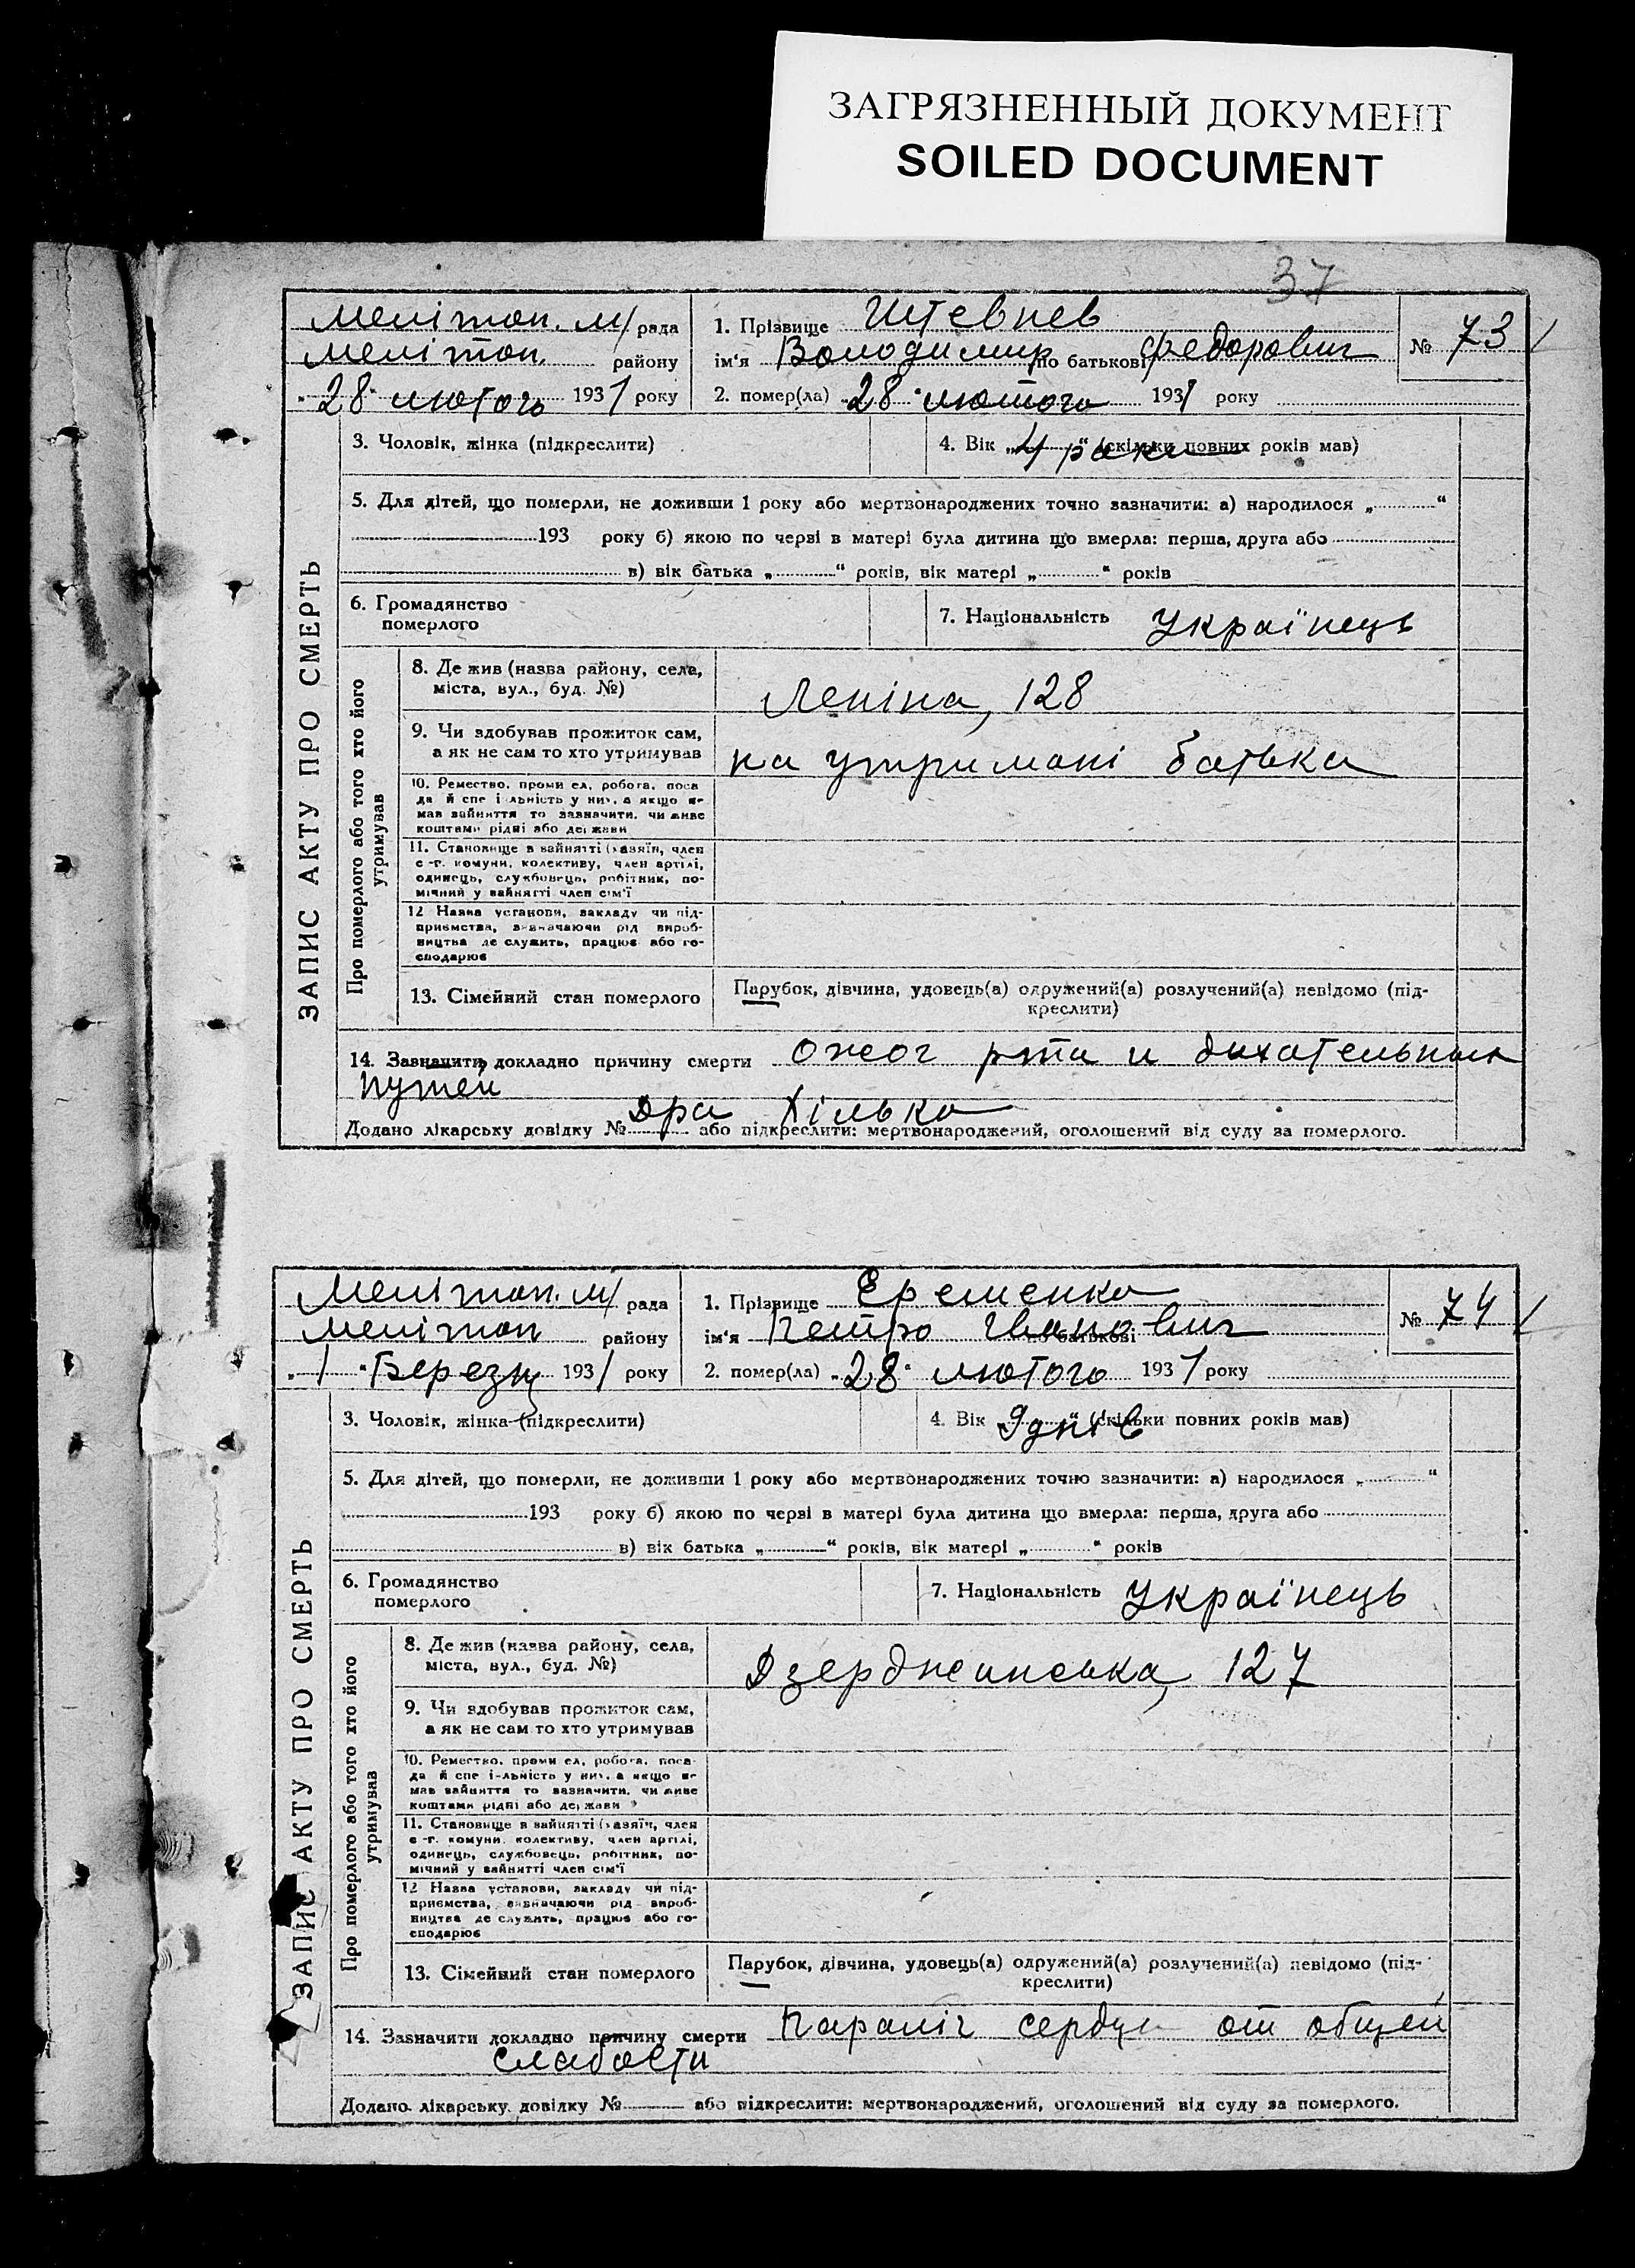 ЗАГРЯЗНЕННЫЙ ДОКУМЕНТ
SOILED DOCUMENT
37
Мелітоп. м/ рада
Мелітоп. району
„28" лютого 1931 року
1. Прізвище Штевнев
ім'я Володимир по батькові Федорович
№ 73
2. помер(ла) „28" лютого 1931 року
ЗАПИС АКТУ ПРО СМЕРТЬ
3. Чоловік, жінка (підкреслити)
4. Вік „4 роки" (скільки повних років мав)
5. Для дітей, що померли, не доживши 1 року або мертвонароджених точно зазначити: а) народилося „ "
193 року б) якою по черві в матері була дитина що вмерла: перша, друга або
в) вік батька „ " років, вік матері „ " років
6. Громадянство
померлого
7. Національність Українець
Про померлого або того хто його
утримував
8. Де жив (назва району, села,
міста, вул., буд. №)
Леніна, 128
9. Чи здобував прожиток сам,
а як не сам то хто утримував
на утримані батька
10. Ремество, проми ел, робота, поса
да й спе і льність у них, а якщо не
мав зайняття то зазначити, чи живе
коштами рідні або держави
11. Становище в зайнятті (хазяїн, член
с-г. комуни, колективу, член артілі,
одинець, службовець, робітник, по-
мічний у зайнятті член сім'ї
12 Назва установи, закладу чи під-
приємства, визначаючи рід вироб-
ництва де служить, працює або го-
сподарює
13. Сімейний стан померлого
Парубок, дівчина, удовець(а) одружений(а) розлучений(а) невідомо (під-
креслити)
14. Зазначити докладно причину смерти ожог рта и дихательных
путей
Дра Хілько
Додано лікарську довідку № або підкреслити: мертвонароджений, оголошений від суду за померлого.
Мелітоп. м/ рада
Мелітоп району
„1" Березн 1931 року
1. Прізвище Еременко
ім'я Петро Іванович по батькові
№ 74
2. помер(ла) „28" лютого 1931 року
ЗАПИС АКТУ ПРО СМЕРТЬ
3. Чоловік, жінка (підкреслити)
4. Вік „9 днів" (скільки повних років мав)
5. Для дітей, що померли, не доживши 1 року або мертвонароджених точно зазначити: а) народилося „ "
193 року б) якою по черві в матері була дитина що вмерла: перша, друга або
в) вік батька „ " років, вік матері „ " років
6. Громадянство
померлого
7. Національність Українець
Про померлого або того хто його
утримував
8. Де жив (назва району, села,
міста, вул., буд. №)
Дзержинська, 127
9. Чи здобував прожиток сам,
а як не сам то хто утримував
10. Ремество, проми ел, робота, поса-
да й спе і-льність у них, а якщо не
мав зайняття то зазначити, чи живе
коштами рідні або держави
11. Становище в зайнятті (хазяїн, член
с-г. комуни, колективу, член артілі,
одинець, службовець, робітник, по-
мічний у зайнятті член сім'ї
12 Назва установи, закладу чи під-
приємства, визначаючи рід вироб-
ництва де служить, працює або го-
сподарює
13. Сімейний стан померлого
Парубок, дівчина, удовець(а) одружений(а) розлучений(а) невідомо (під-
креслити)
14. Зазначити докладно причину смерти Параліч сердця от общей
слабости
Додано лікарську довідку № або підкреслити: мертвонароджений, оголошений від суду за померлого.